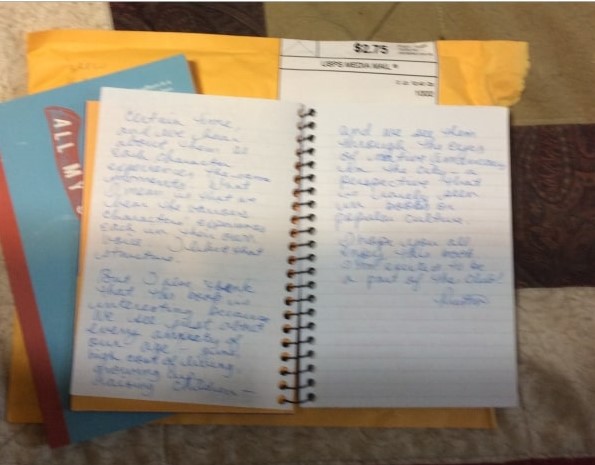 $2.75
USPS MEDIA MAIL
ALL MY
certain time,
and we hear
about them as
each character
experiences the same
moments. What
I mean is that we
hear the various
characters' experiences
each in their own
voice. I like that
structure.
But I also think
that this book is
interesting because
we see just about
every anxiety of
our age –
high cost of living,
growing
raising children –
and we see them
through the eyes
of native americans
in the city, a
perspective that
seen
in books or
popular culture.
I hope you all
enjoy this book.
excited to be
a part of the club!